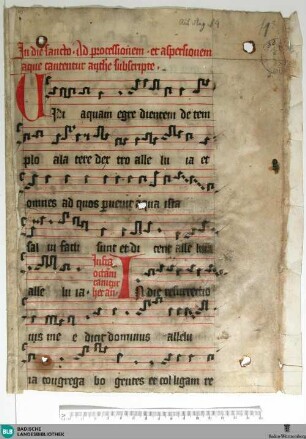 In die sancto · Ad processionem · et aspersionem
aque cantentur anthe subscripte ·
Vidi aquam egredientem de tem
plo a latere dextro alle lu ia et
omnes ad quos peruenit aqua ista
salui facti sunt et dicent alle luia
alle lu ia · In die resurrectio
nis me e dicit dominus allelu
ia congrega bo gentes et colligam re
BLB
BADISCHE
LANDESBIBLIOTHEK